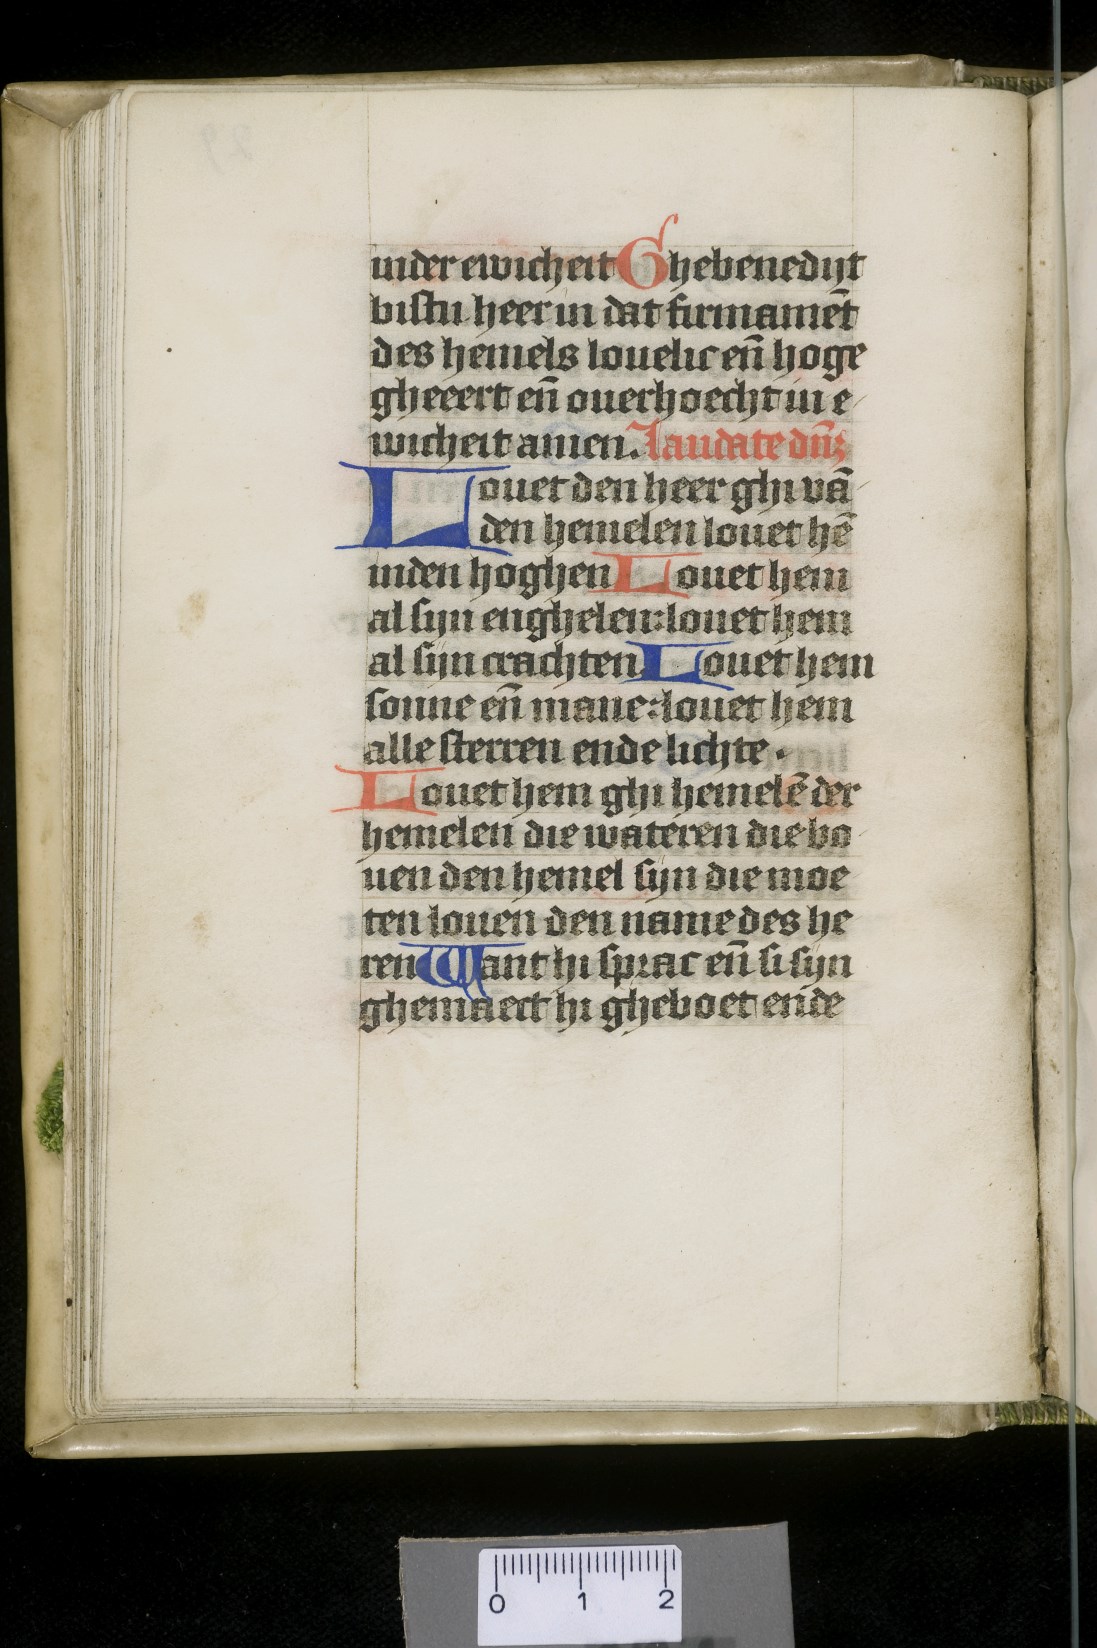 inder ewicheit Ghebenedijt
bistu heer in dat firmamēt
des hemels louelic en̄ hoge
gheeert en̄ ouerhoecht in e
wicheit amen. Laudate dn̄ʒ
Louet den heer ghi vā
den hemelen louet hē
inden hoghen Louet hem
al sijn enghelen: louet hem
al sijn crachten Louet hem
sonne en̄ mane: louet hem
alle sterren ende lichte.
Louet hem ghi hemelē der
hemelen die wateren die bo
uen den hemel sijn die moe
ten louen den name des he
ren Want hi sprac en̄ si sijn
ghemaect hi gheboet ende
0 1 2